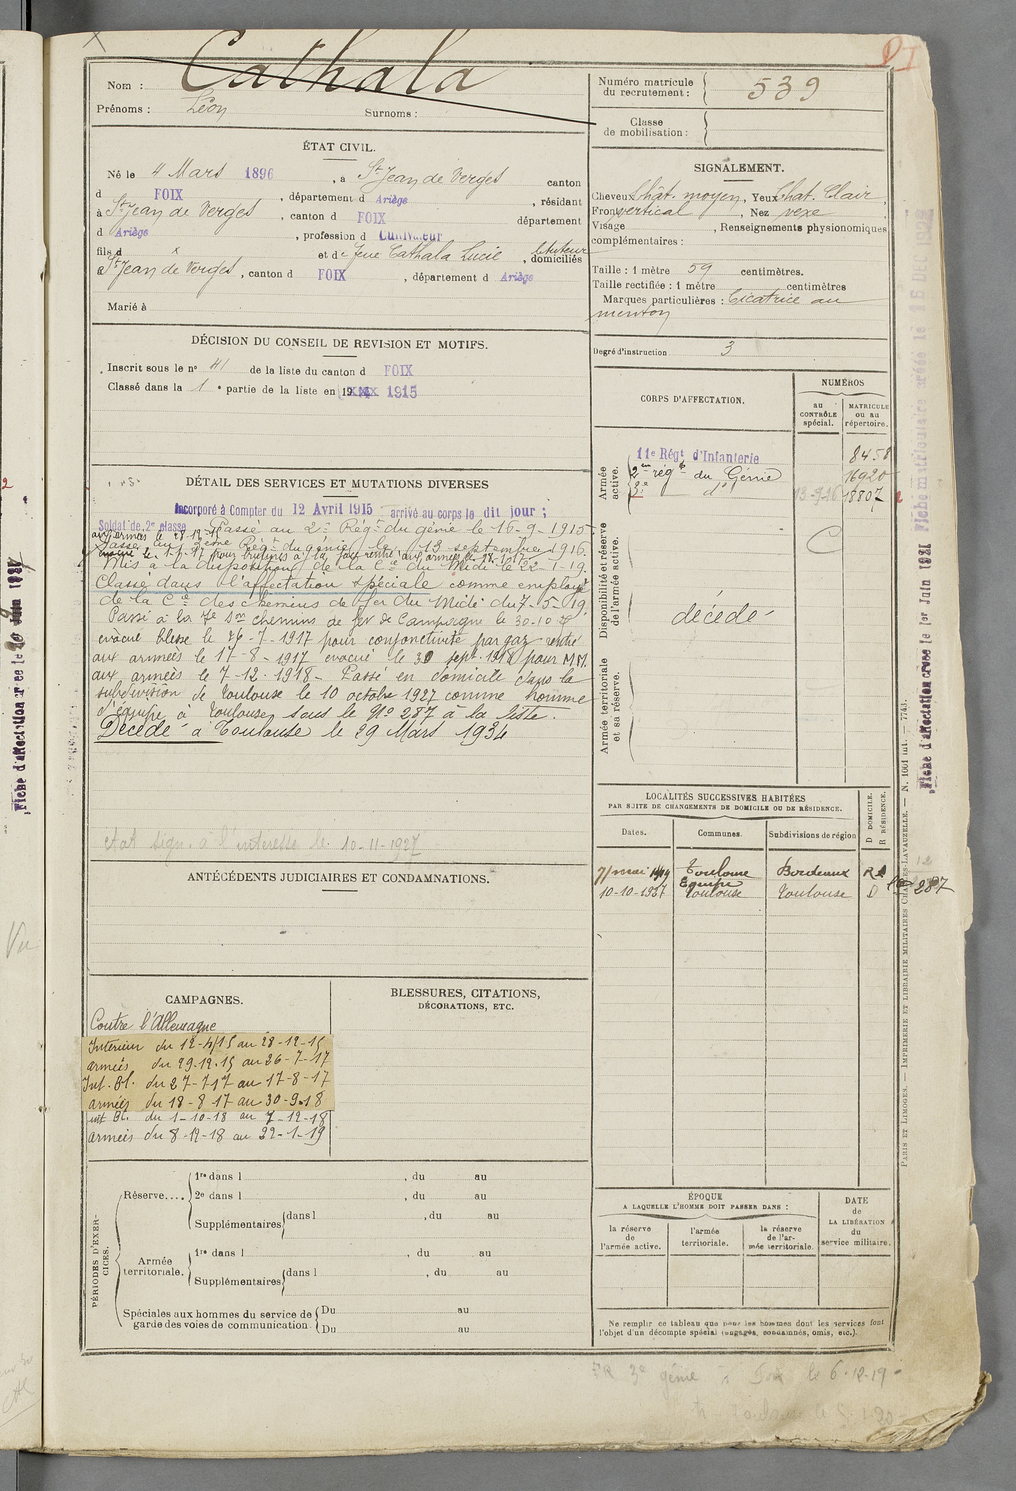 Nom : Cathala
Prénoms : Léon Surnoms :
Numéro matricule du recrutement : 539
Classe de mobilisation :
ÉTAT CIVIL.
Né le 4 Mars 1896, à St Jean de Verges canton
d FOIX, département d Ariège, résidant
à St Jean de Verges, canton d FOIX département
d Ariège, profession d Cultivateur
fils d x et de feue Cathala Lucie, domiciliés
à St Jean de Verges, canton d FOIX, département d Ariège
Marié à
SIGNALEMENT.
Cheveux chât. moyen, Yeux chat. Clair,
Front vertical, Nez vexe
Visage , Renseignements physionomiques
complémentaires :
Taille : 1 mètre 59 centimètres.
Taille rectifiée : 1 mètre centimètres
Marques particulières : Cicatrice au
menton
Degré d'instruction 3
DÉCISION DU CONSEIL DE REVISION ET MOTIFS.
Inscrit sous le nº 41 de la liste du canton d FOIX
Classé dans la 1e partie de la liste en 1915
CORPS D'AFFECTATION.
NUMÉROS
AU CONTRÔLE spécial.
MATRICULE ou au répertoire.
Armée active.
11e Régt d'Infanterie 8458
2em régt du Génie 16920
3e do 13-9-16 18807
Disponibilité et réserve de l'armée active.
C
décédé
Armée territoriale et sa réserve.
DÉTAIL DES SERVICES ET MUTATIONS DIVERSES
Incorporé à Compter du 12 Avril 1915 arrivé au corps le dit jour ;
Soldat de 2e classe Passé au 2e Régt du génie le 16-9-1915
Passé au 3ème Régt du génie le 13 septembre 1916.
Mis à la disposition de la Cie du Midi le 22-1-19.
Classé dans l'affectation spéciale comme employé
de la Cie des chemins de fer du Midi du 7-5-19.
Passé à la 7e Son chemins de fer de Campagne le 30-10
évacué blessé le 26-7-1917 pour conjonctivité par gaz rentré
aux armées le 17-8-1917 évacué le 30 sept. 1918 pour
aux armées le 7-12-1918- Passé en domicile dans la
subdivision de Toulouse le 10 octobre 1927 comme homme
d'équipe à Toulouse sous le No 287 à la liste.
Décédé à Toulouse le 29 Mars 1934
à l'intéressé le 10-11-1927
ANTÉCÉDENTS JUDICIAIRES ET CONDAMNATIONS.
LOCALITÉS SUCCESSIVES HABITÉES
PAR SUITE DE CHANGEMENTS DE DOMICILE OU DE RÉSIDENCE.
Dates. Communes. Subdivisions de région D DOMICILE. R RÉSIDENCE.
7 mai 1919 Toulouse Bordeaux R
10-10-1927 Toulouse Toulouse D 287
CAMPAGNES.
Contre l'Allemagne
Intérieur du 12-4-15 au 28-12-15
armées du 29-12-15 au 26-7-17
Int. Bl. du 27-7-17 au 17-8-17
armées du 18-8-17 au 30-9-18
int Bl. du 1-10-18 au 7-12-18
armées du 8-12-18 au 22-1-19
BLESSURES, CITATIONS,
DÉCORATIONS, ETC.
PÉRIODES D'EXERCICES.
Réserve....
1re dans l , du au
2e dans l , du au
Supplémentaires dans l , du au
Armée territoriale.
1re dans l , du au
Supplémentaires dans l , du au
Spéciales aux hommes du service de garde des voies de communication.
Du au
Du au
ÉPOQUE
A LAQUELLE L'HOMME DOIT PASSER DANS :
la réserve de l'armée active.
l'armée territoriale.
la réserve de l'armée territoriale.
DATE de LA LIBÉRATION du service militaire.
Ne remplir ce tableau que pour les hommes dont les services font
l'objet d'un décompte spécial (engagés, condamnés, omis, etc.).
3e génie à Foix le 6-12-19
PARIS ET LIMOGES. — IMPRIMERIE ET LIBRAIRIE MILITAIRES CHARLES-LAVAUZELLE. — N. 1001 int. — 7743.
Fiche d'affectation créée le 1er Juin 1931
Fiche matriculaire créée le 16 DEC
Fiche d'affectation créée le 1er Juin
Vu